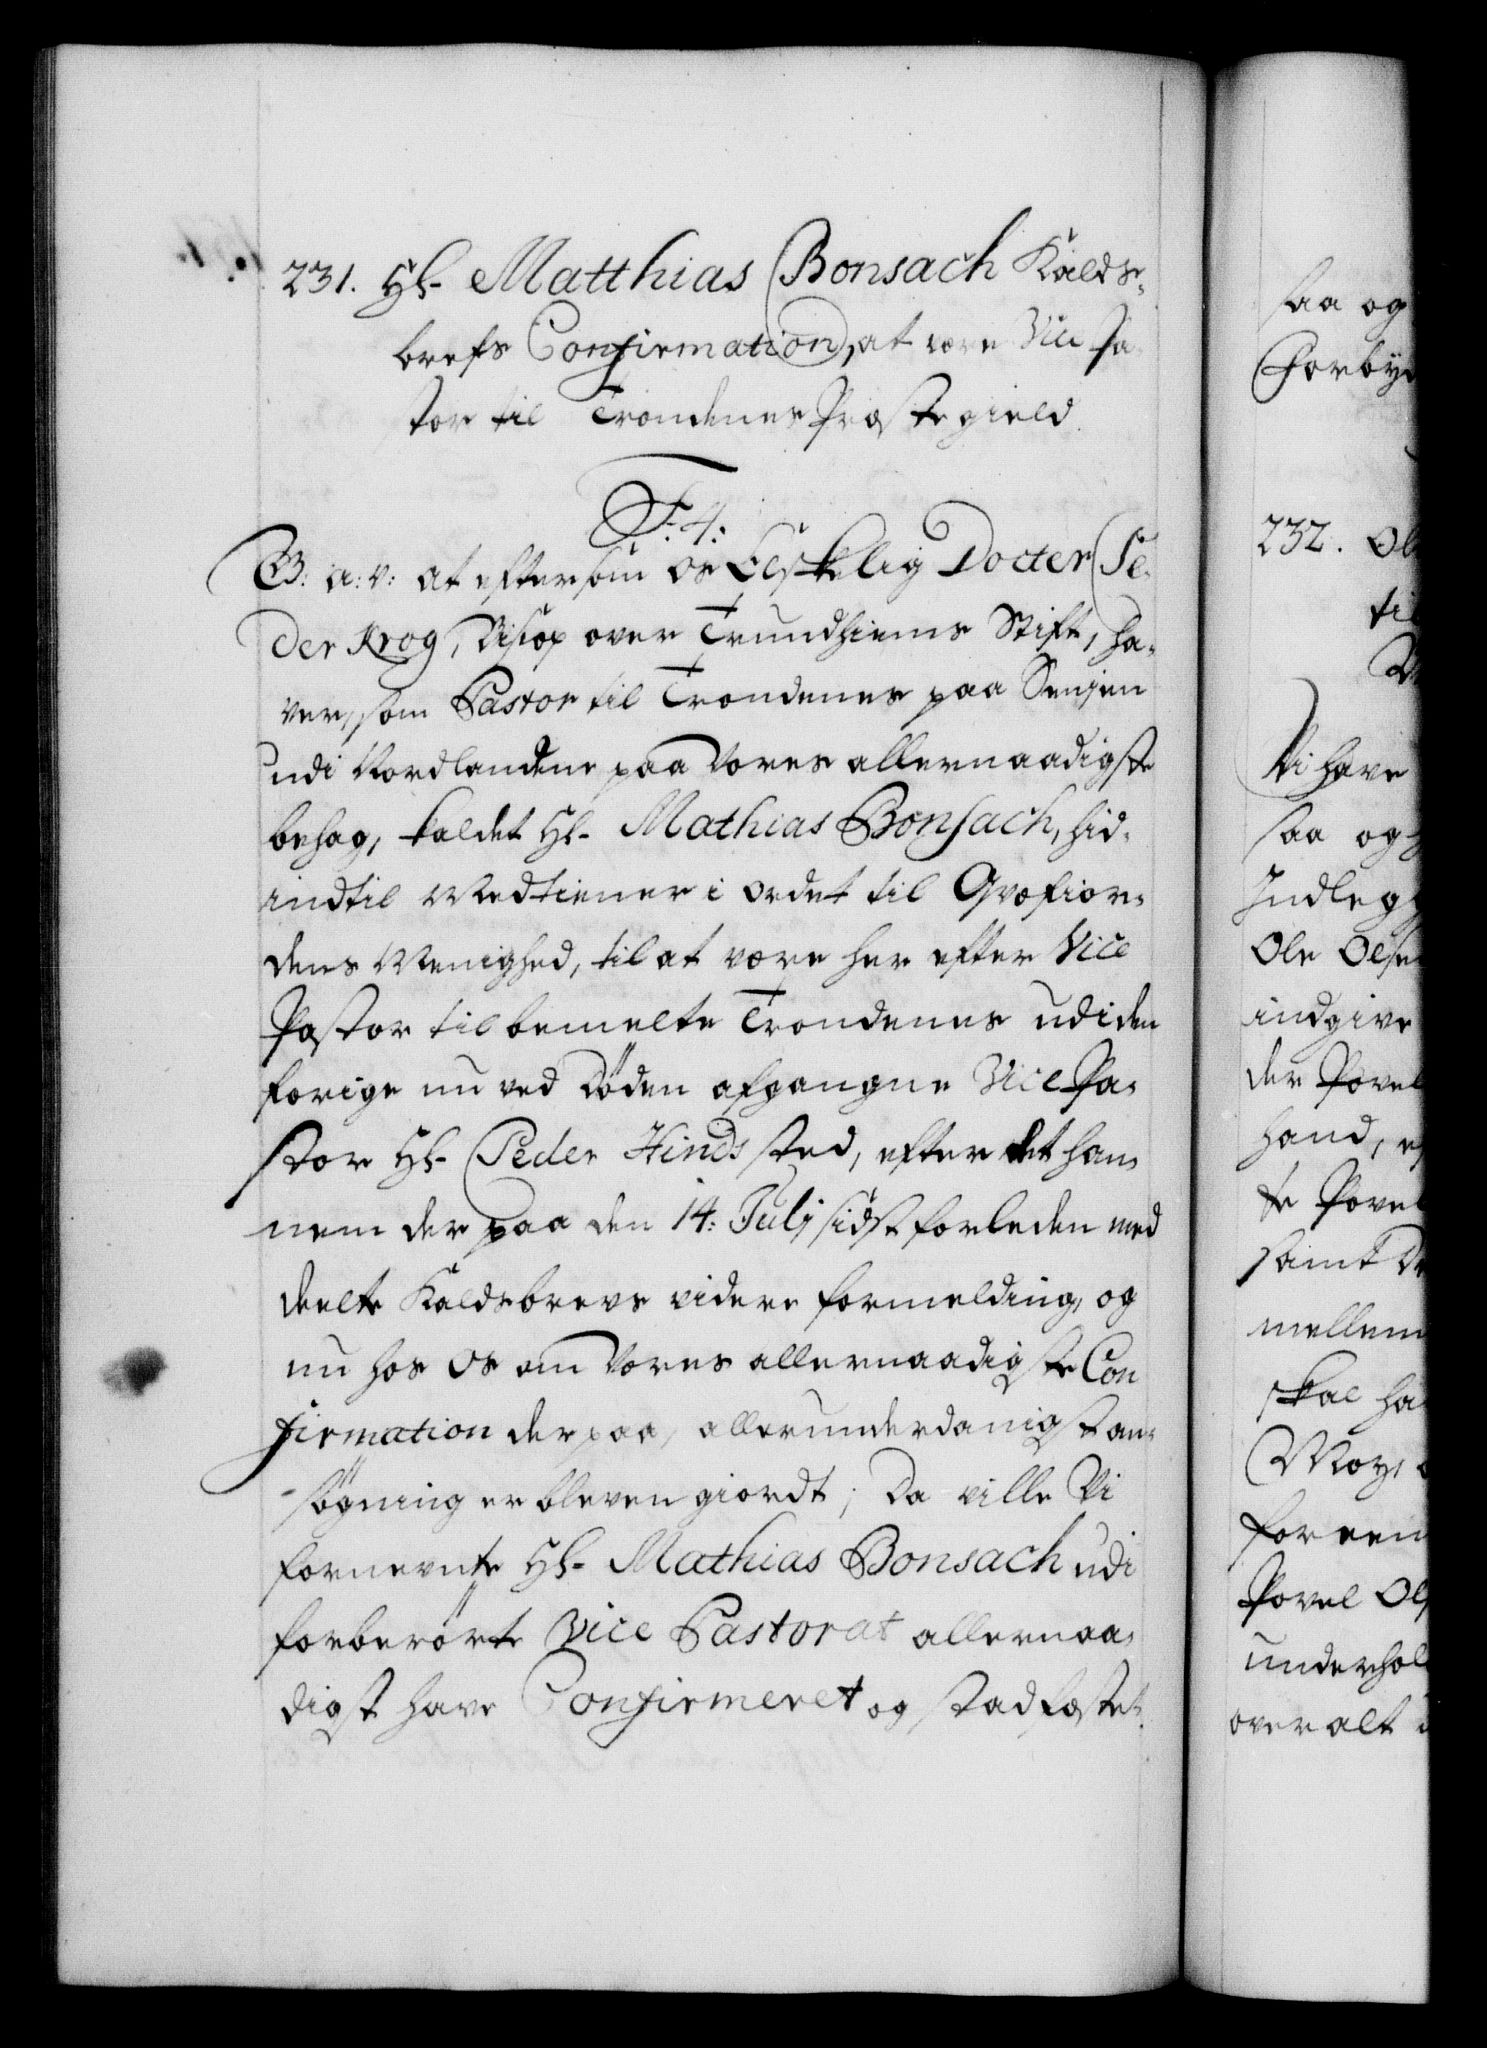 231. Hr. Matthias Bonsach Kalds-
brefs Confirmation, at være Vice Pa-
stor til Trondenes Præstegield.
F: 4:
G: a: v: at eftersom os Elskelig Docter Pe-
der Krog, Bisop over Trundhiems Stift, ha-
ver, som Pastor til Trondenes paa Senjen
udi Nordlandene paa Vores allernaadigste
behag, kaldet Hr. Mathias Bonsach, hid-
indtil Medtiener i ordet til Qvæfior-
dens Menighed, til at være her efter Vice
Pastor til bemelte Trondenes udi den
forige nu ved Døden afgangne Vice Pa-
stor Hr. Peder Hinds sted, efter det han-
nem der paa den 14: Julj sidst forleden med
deelte Kaldsbrevs videre formelding, og
nu hos Os om Vores allernaadigste Con
firmation derpaa, allerunderdanigst an-
søgning er bleven giordt; Da ville Vi
fornevnte Hr. Mathias Bonsach udi
forberørte Vice Pastorat allernaa-
digst have Confirmeret og stadfæstet,
saa og
Forby
232. Ol
til
Vi have
saa og
Indleg
Ole Olse
indgive
der Povel
hand, ef
te Povel
samt De
mellem
skal ha
Moy,
foreen
Povel Ols
underhol
over alt